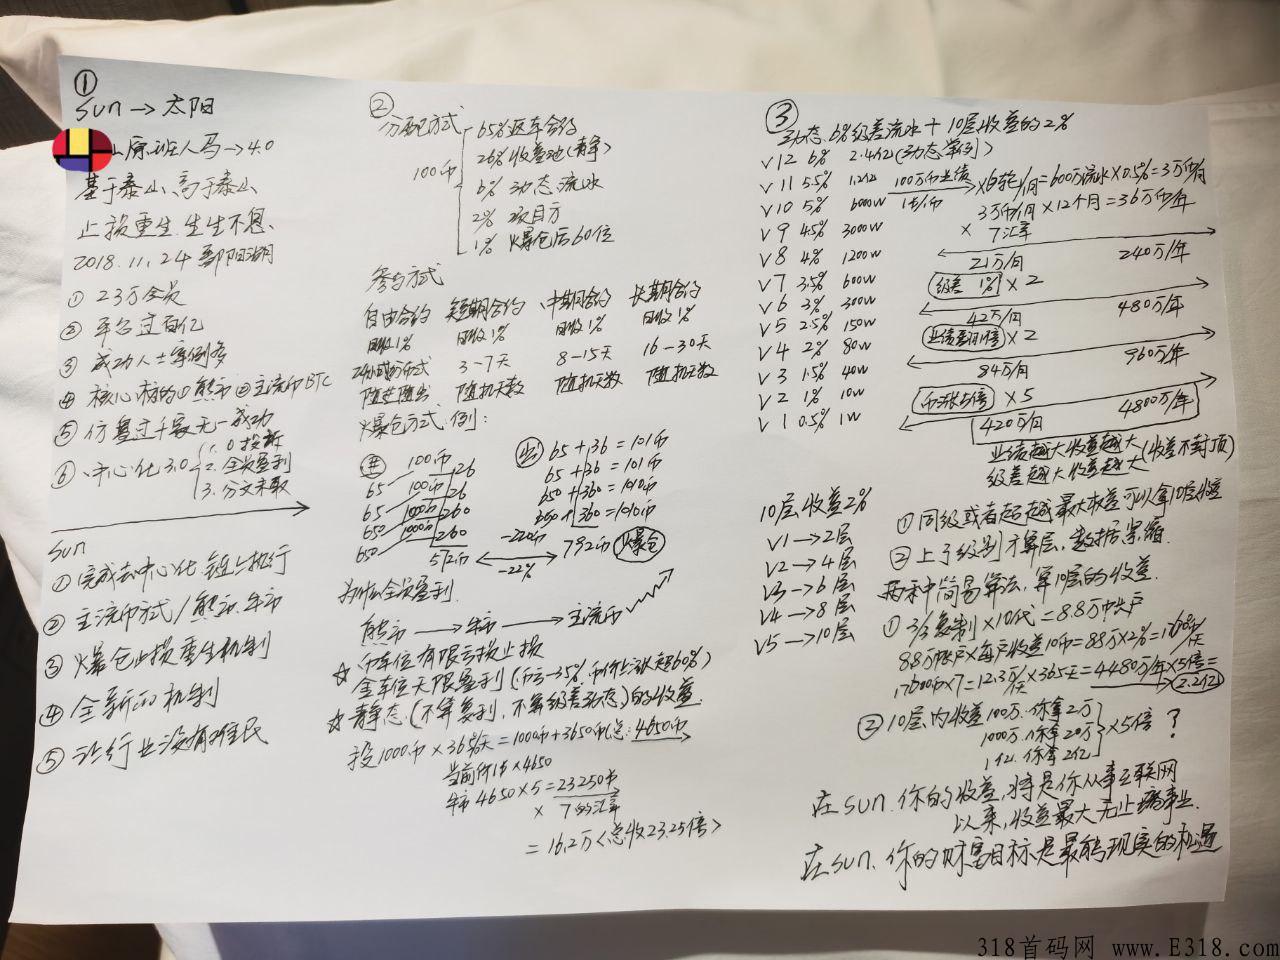 ①
sun → 太阳
山原班人马 → 4.0
基于泰山、高于泰山
止损重生 生生不息、
2018.11.24 鄱阳湖
① 23万会员
② 平台过百亿
③ 成功人士案例多
④ 核心标的①熊市②主流币BTC
⑤ 仿盘过千家无一成功
⑥ 中心化3.0
1. 0投诉
2. 全员盈利
3. 分文未取
sun
① 完成去中心化 链上执行
② 主流币方式/熊市.牛市
③ 爆仓止损重生机制
④ 全新的机制
⑤ 让行业没有难民
②
分配方式
100币
65% 返车合约
26% 收益池(静)
6% 动态流水
2% 项目方
1% 爆仓后60位
参与方式
自由合约 短期合约 中期合约 长期合约
日收1% 日收1% 日收1% 日收1%
24小时方式 3-7天 8-15天 16-30天
随进随出 随机天数 随机天数 随机天数
爆仓方式.例:
100币
65 100币 26
65 1000币 26
650 1000币 260
650 260
572币
65+36=101币
65+36=101币
650+360=1010币
650+360=1010币
-220币
792币 爆仓
-22%
为什么全员盈利
熊市 → 牛市 → 主流币
☆ 币车位有限亏损止损
金车位无限盈利(币亏-35%,币价上涨超60%)
☆ 静态(不算复利,不算级差动态)的收益
投1000币×365天=1000币+3650币 总:4650币
当前价1$×4650
牛市4650×5=23250$
× 7的汇率
=16.2万<总收23.25倍>
③
动态.6%级差流水+10层收益的2%
V12 6% 2.4亿(动态举例)
V11 5.5% 1.2亿
V10 5% 6000w
V9 4.5% 3000w
V8 4% 1200w
V7 3.5% 600w
V6 3% 300w
V5 2.5% 150w
V4 2% 80w
V3 1.5% 40w
V2 1% 10w
V1 0.5% 1w
100万币业绩 ×6轮/月=600万流水×0.5%=3万币/月
1$/币
3万币/月×12个月=36万币/年
× 7汇率
21万/月 240万/年
级差 1% ×2
42万/月 480万/年
业绩翻1倍 ×2
84万/月 960万/年
币涨5倍 ×5
420万/月 4800万/年
业绩越大收益越大
级差越大收益越大(收益不封顶)
10层收益2%
V1→2层
V2→4层
V3→6层
V4→8层
V5→10层
① 同级或者超越最大收益可以拿10层收益
② 上了级别才算层,数据累缩.
两种中简易算法,算10层的收益.
① 3/3复制×10代=8.8万帐户
8.8万帐户×每户收益10币=88万×2%=17600币/天
17600币×7=12.3万/天×365天=4480万/年×5倍=
2.2亿
② 10层内收益100万.你拿2万
1000万.你拿20万
1亿.你拿2亿
×5倍?
在sun.你的收益,将是你从事互联网
以来,收益最大无止境事业.
在sun.你的财富目标是最能现实的机遇
318首码网 www.E318.com